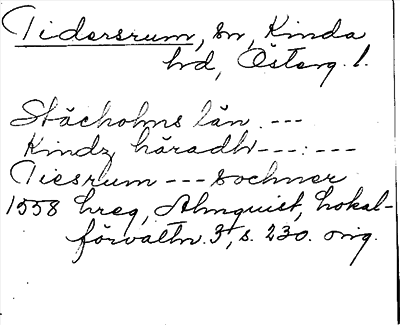 Tidersrum, sn, Kinda
hd, Österg. l.
Stächolms län. ---
Kindz häradh ---:---
Tiesrum --- sochner
1558 hreg, Almquist, Lokal-
förvaltn. 3, s. 230. orig.